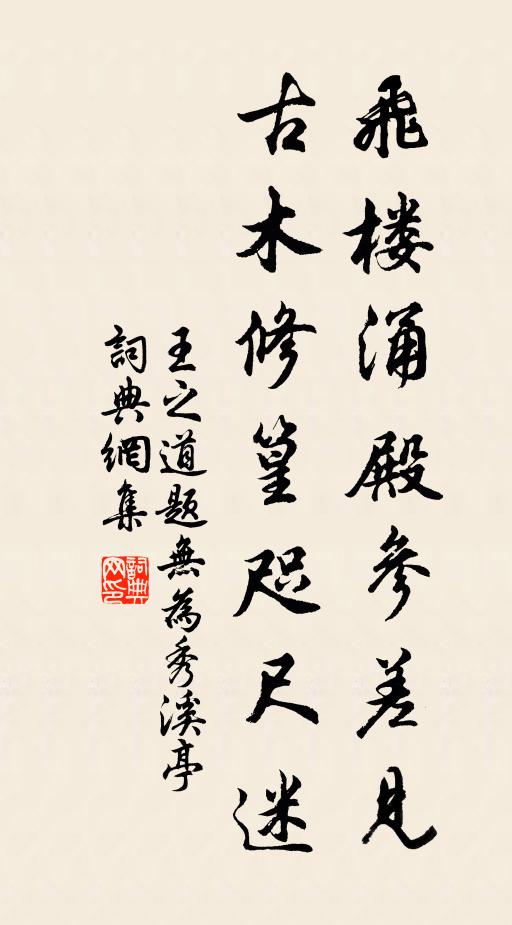 飛楼涌殿參差見
古木修篁咫尺迷
王之道題無為秀溪亭
詞典網集
詞典
网印